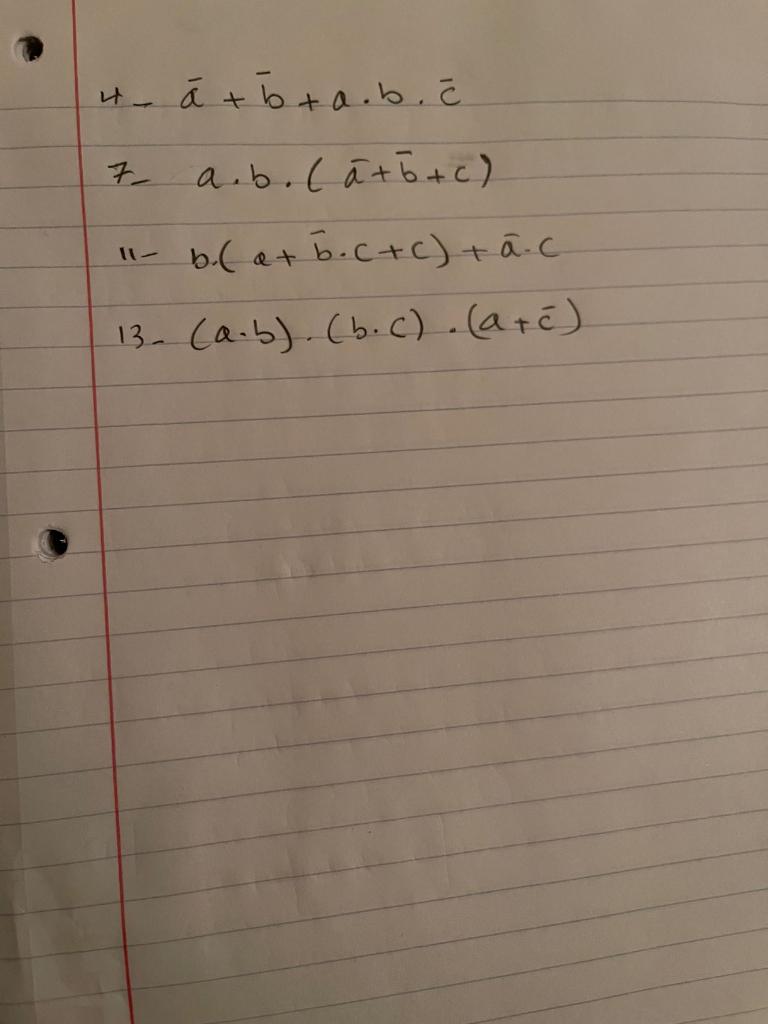 4- ā + b̄ + a . b . c̄
7- a . b . ( ā + b̄ + c )
11- b.( a + b̄ . c + c ) + ā . c
13- ( a . b ) . ( b . c ) . ( a + c̄ )